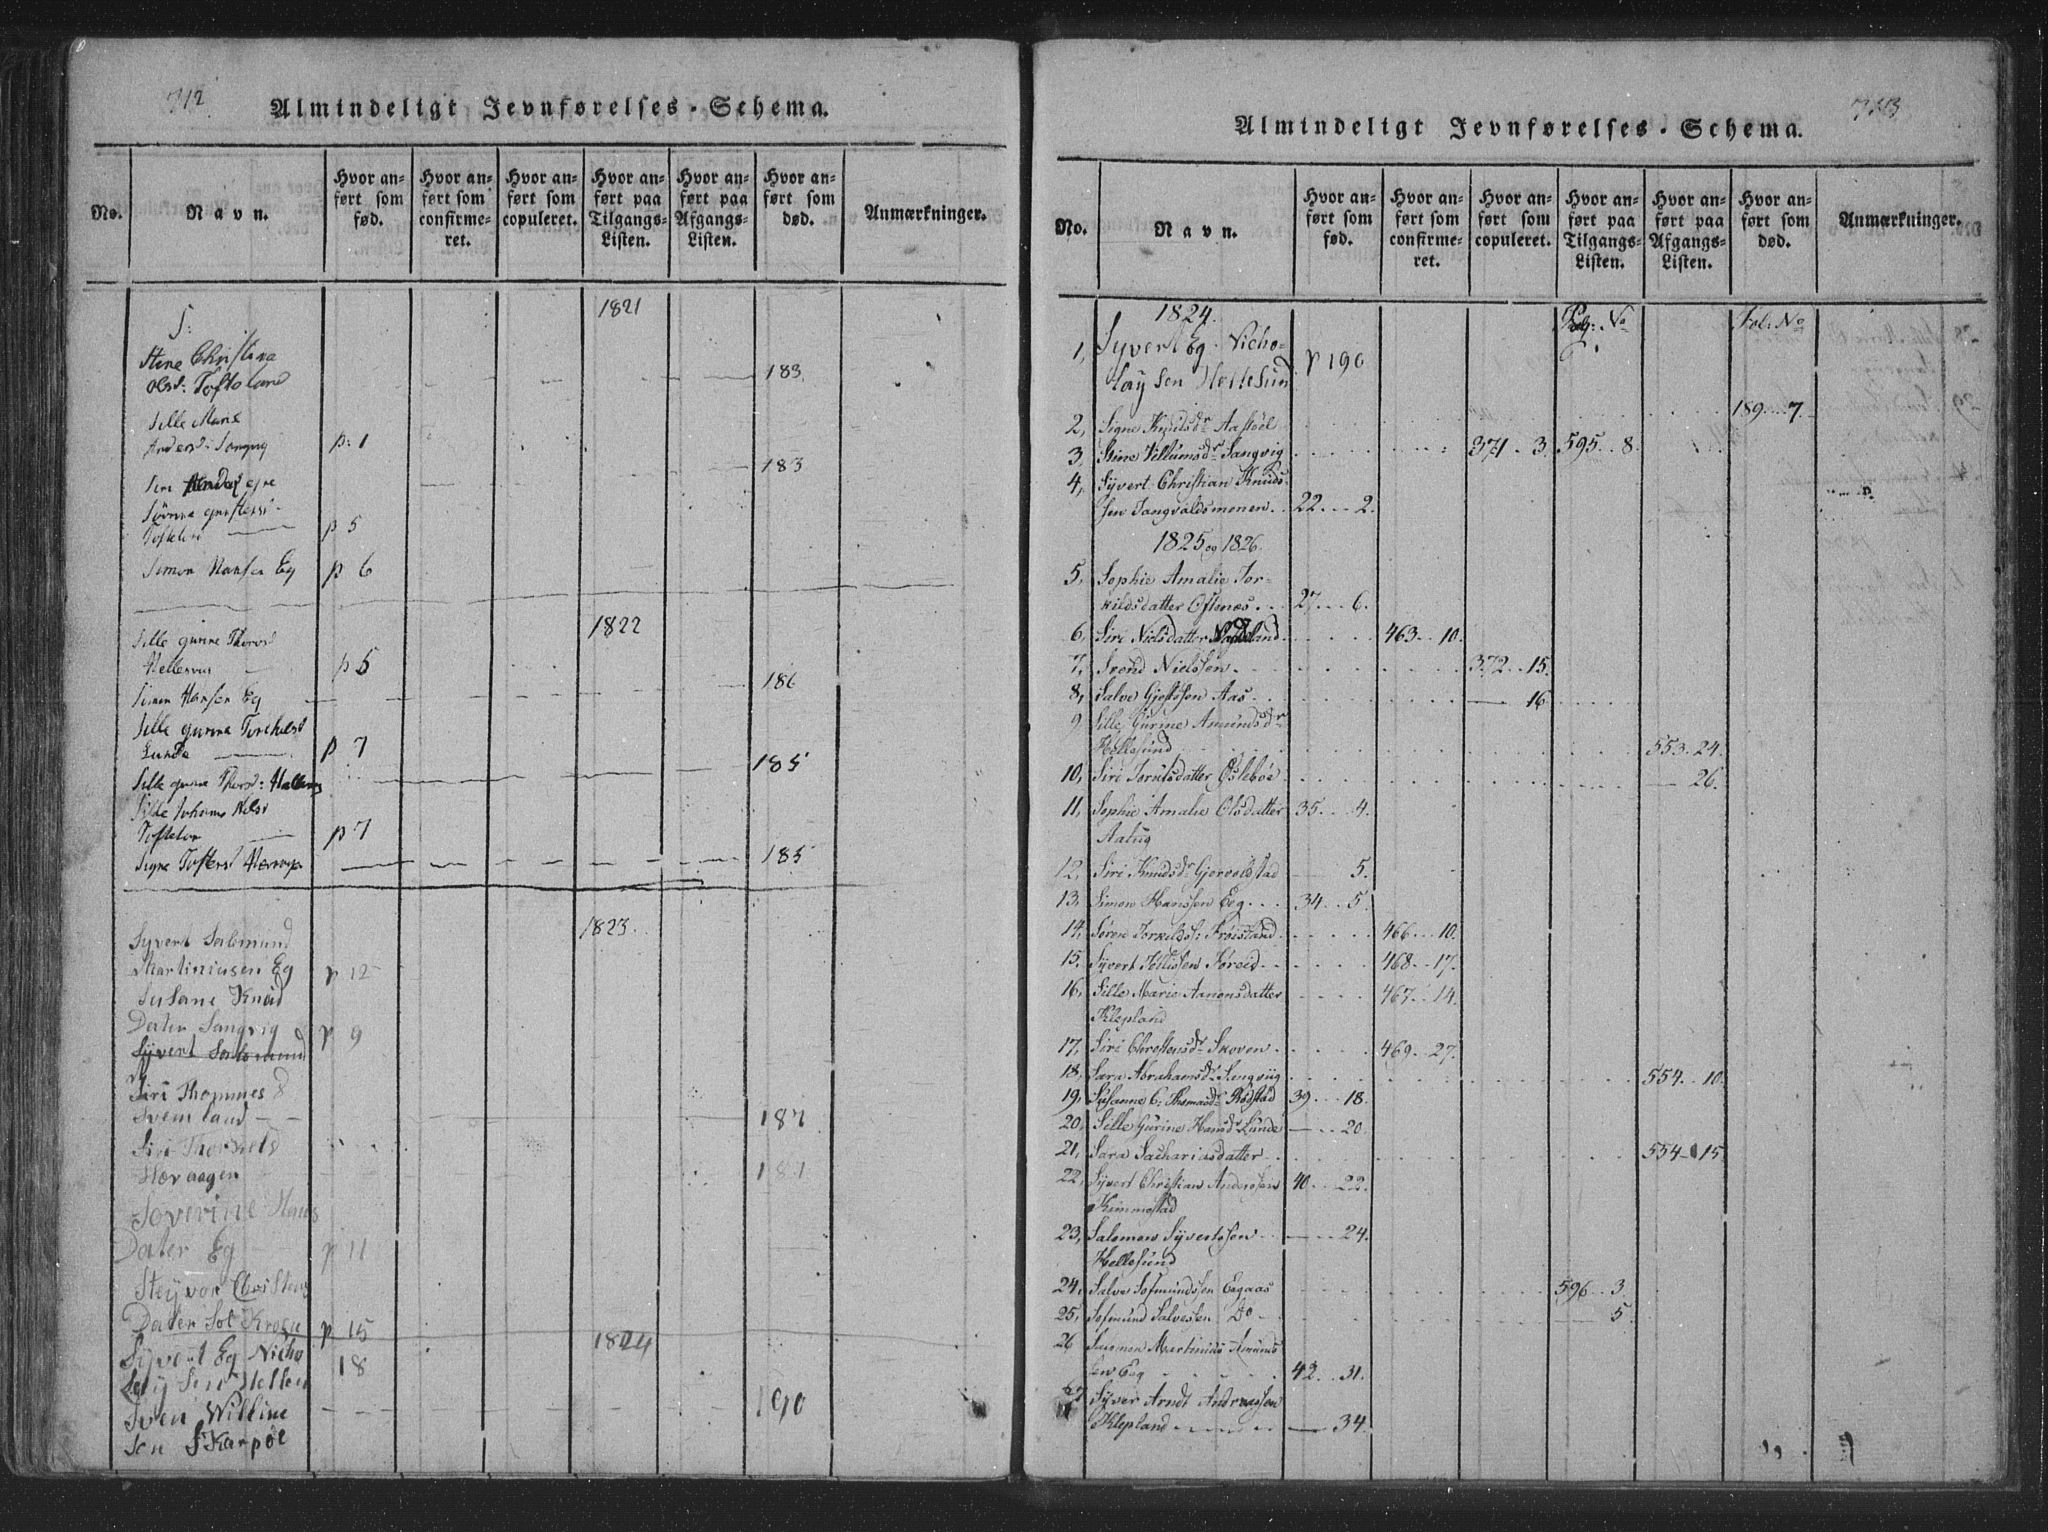 712
Almindeligt Jevnførelses-Schema.
No.
Navn.
Hvor anført som fød.
Hvor anført som confirmeret.
Hvor anført som copuleret.
Hvor anført paa Tilgangs-Listen.
Hvor anført paa Afgangs-Listen.
Hvor anført som død.
Anmærkninger.
S: 1821
Stine Christina
Olsd: Toftoland 183
Sille Marie
Anders- Songvig p: 1
183
Toftelan p 5
Simon Hansen Eg p 6
1822
Sille gurine Thorsd
p 5
Simon Hansen Eg 186
Sille gurine Torckelsd
Lunde p 7
Sille gurine Thorsd: 185
Sille Johanne Nelsd
Toftelan p 7
Signe 185
1823
Syvert Salomund
Martiniusen Eg p 12
Susane Knud
Dater Sangvig p 9
Syvert Salomund
Siri Thommes d
Svemland 187
Siri Thorkels
Hervaagen 187
Soverine Hans
Dater Eg p 11
Steyvor Christens
Dater p 15
Syvert Eg Nicho 1824
laysen Hellen 18
Sven Willine
sen 190
713
Almindeligt Jevnførelses-Schema.
No.
Navn.
Hvor anført som fød.
Hvor anført som confirmeret.
Hvor anført som copuleret.
Hvor anført paa Tilgangs-Listen.
Hvor anført paa Afgangs-Listen.
Hvor anført som død.
Anmærkninger.
1824. Pag: No Fol: No
1, Syvert Eg. Nicho-
laysen Hellesund p 190
2, Signe Knudsdr Aastøel 189 7
3, Stine Villumsdr Sangvig 371 3 595 8
4, Syvert Christian Knuds-
sen Tangvaldsmonen 22 2
1825 og 1826
5, Sophie Amalie Tor-
kildsdatter Oftenæs 27 6.
6, Siri Nielsdatter 463 10.
7, Svend Nielssen 372 15.
8, Salve Gjestssen Aas — 16
9 Sille Gurine Amundsdr
Hellesund 553 24.
10, Siri Tarulsdatter Oslebøe — 26.
11, Sophie Amalie Olsdatter 35 4.
12, Siri Knudsdr Gjervoldstad — 5.
13, Simon Hanssen Eeg 34 5.
14, Søren Torkelss: Frøisland 466 10.
15. Syvert 468 17.
16, Sille Marie Aanensdatter 467 14.
Klepland
17, Siri Chrestensdr Skoven 469 27.
18, Sara Abrahamsdr Sangviig 554 10.
19, Susanne C: Thomasdr Rødstad 39 18.
20, Sille Gurine Hansdr Lunde — 20.
21, Sara Sachariasdatter 554 15
22, Syvert Christian Anderssen 40 22.
Kimmestad
23, Salomon Syvertssen — 24.
Hellesund
24, Salve Sofmundssen Eegaas 596 3
25, Sofmund Salvesen Do — 5.
26 Salomon Martinius Amunds
sen Eeg 42. 31.
27 Syver Arndt Andreassen
Klepland — 34.